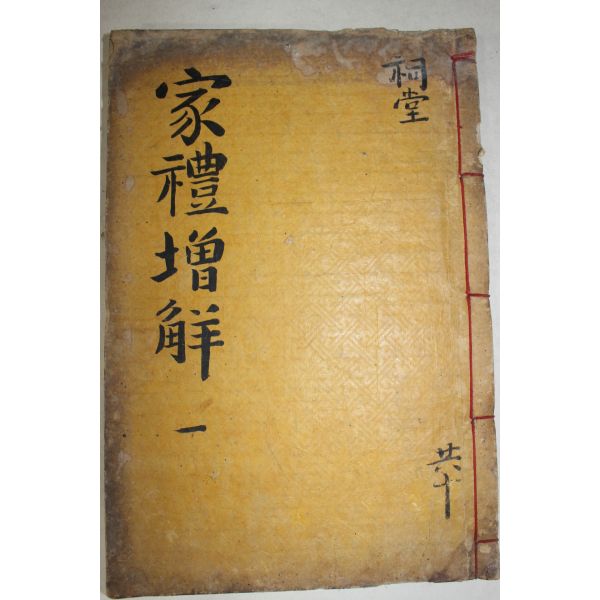 祠堂
家禮增觧
一
共十